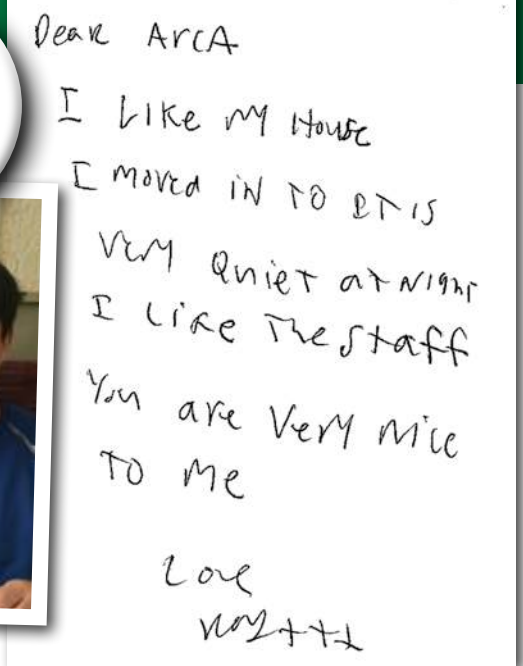 Dear ArcA
I Like my House
I moved in to it is
very Quiet at Night
I like The staff
You are very nice
To me
Love